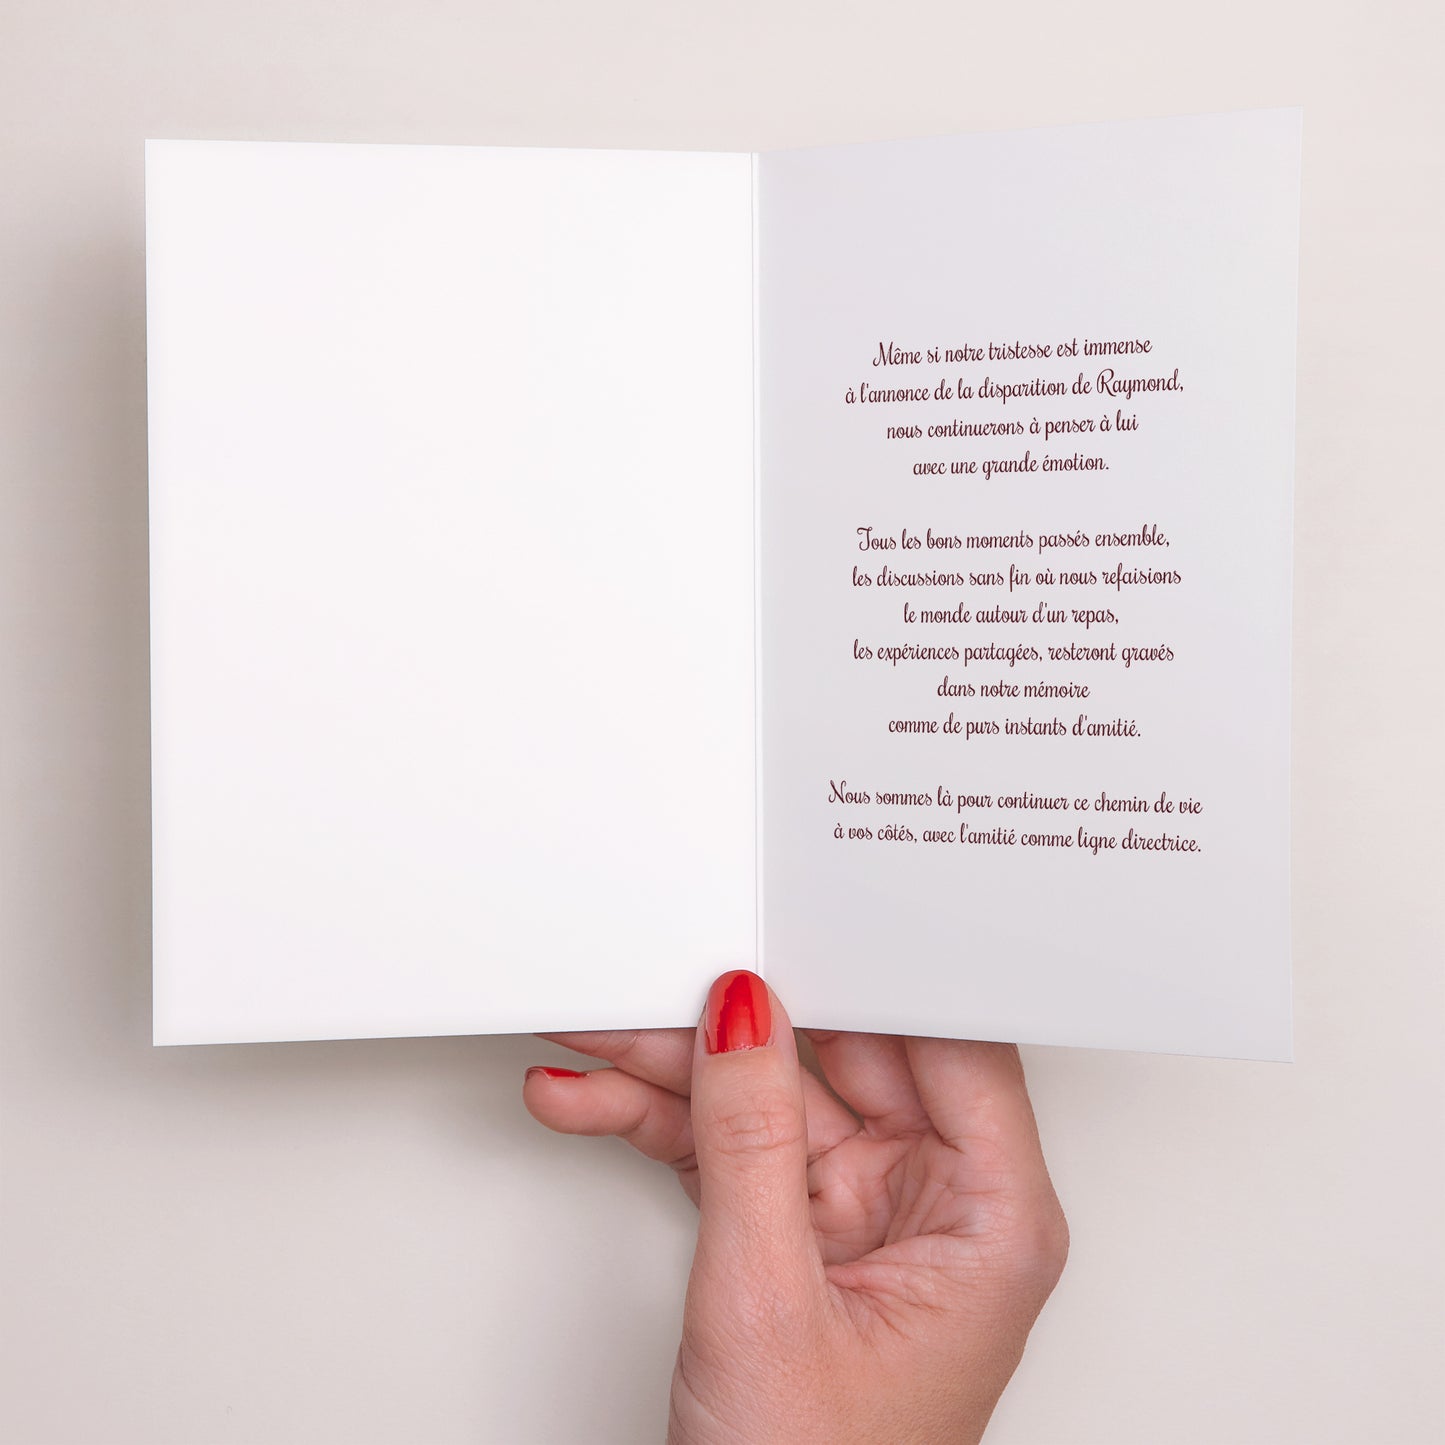 Même si notre tristesse est immense
à l'annonce de la disparition de Raymond,
nous continuerons à penser à lui
avec une grande émotion.
Tous les bons moments passés ensemble,
les discussions sans fin où nous refaisions
le monde autour d'un repas,
les expériences partagées, resteront gravés
dans notre mémoire
comme de purs instants d'amitié.
Nous sommes là pour continuer ce chemin de vie
à vos côtés, avec l'amitié comme ligne directrice.